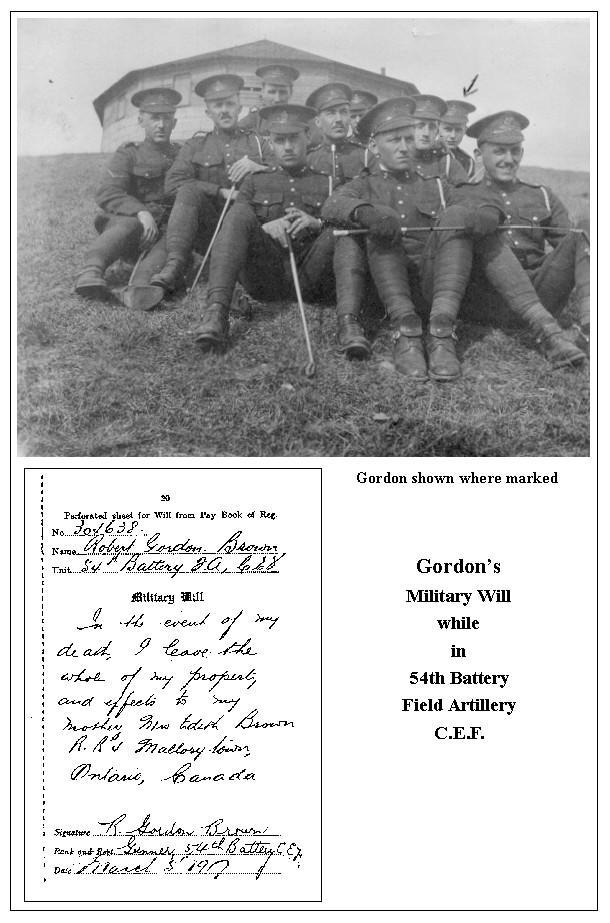 Gordon shown where marked
20
Perforated sheet for Will from Pay Book of Reg.
No. 304638.
Name Robert Gordon Brown
Unit 54th Battery F.A., C.E.F.
Military Will
In the event of my
death, I leave the
whole of my property,
and effects to my
mother Mrs Edith Brown
R.R. Mallorytown,
Ontario, Canada
Signature R. Gordon Brown
Rank and Regt. Gunner, 54th Battery C.E.F.
Date March 5 1917
Gordon's
Military Will
while
in
54th Battery
Field Artillery
C.E.F.